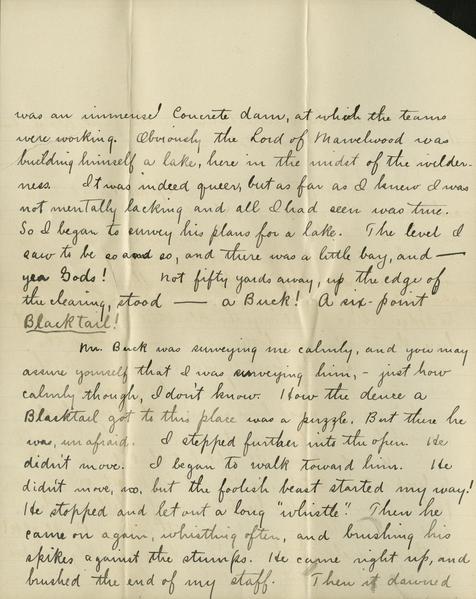 was an immense! Concrete dam, at which the teams
were working. Obviously the Lord of Marvelwood was
building himself a lake, here in the midst of the wilder-
ness. It was indeed queer, but as far as I knew I was
not mentally lacking and all I had seen was true.
So I began to survey his plans for a lake. The level I
saw to be so and so, and there was a little bay, and —
yea Gods! Not fifty yards away, up the edge of
the clearing, stood — a Buck! A six-point
Blacktail!
Mr. Buck was surveying me calmly, and you may
assure yourself that I was surveying him, - just how
calmly though, I don't know. How the deuce a
Blacktail got to this place was a puzzle. But there he
was, unafraid. I stepped further into the open. He
didn't move. I began to walk toward him. He
didn't move, no, but the foolish beast started my way!
He stopped and let out a long "whistle". Then he
came on again, whistling often, and brushing his
spikes against the stumps. He came right up, and
brushed the end of my staff. Then it dawned